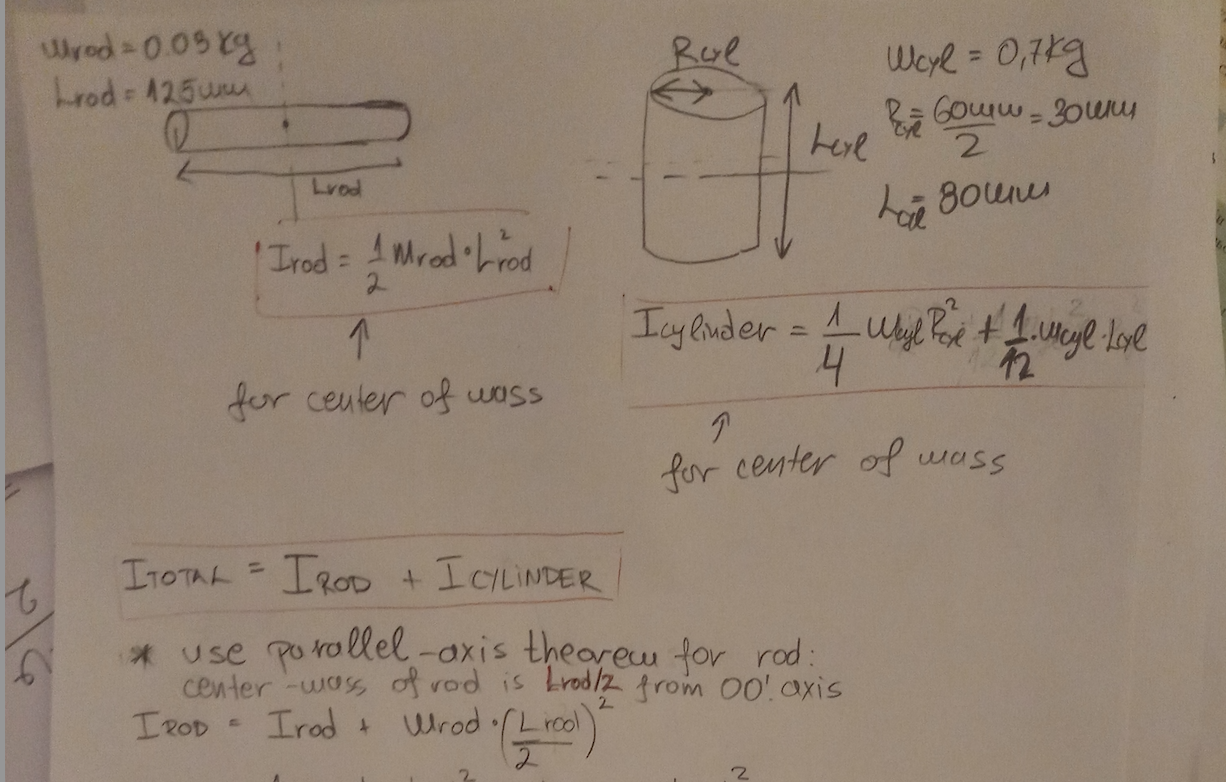 mrod = 0.03 kg
Lrod = 125mm
Lrod
Irod = 1/2 mrod · Lrod²
for center of mass
Rcyl
Lcyl
mcyl = 0,7kg
Rcyl = 60mm/2 = 30mm
Lcyl = 80mm
Icylinder = 1/4 mcyl Rcyl² + 1/12 · mcyl · Lcyl²
for center of mass
ITOTAL = IROD + ICYLINDER
* use parallel-axis theorem for rod:
center-mass of rod is Lrod/2 from OO' axis
IROD = Irod + mrod · (Lrod/2)²